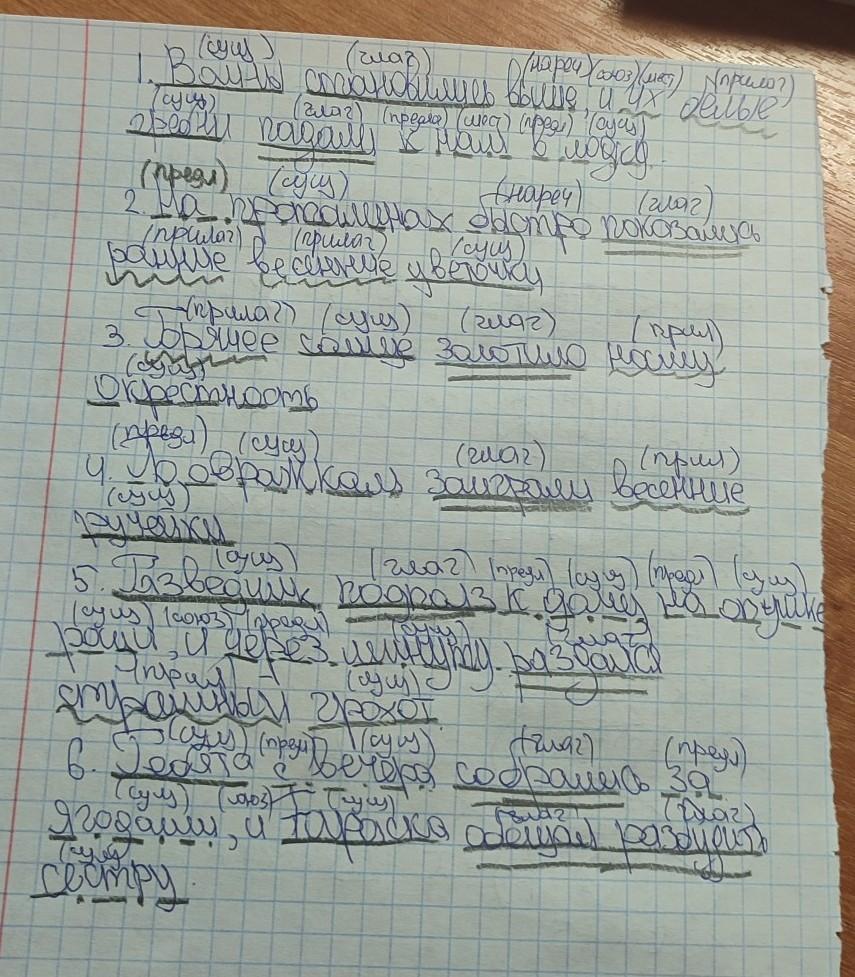 (сущ) (глаг) (нареч) (союз) (мест) (прилаг)
1. Волны становились выше, и их белые
(сущ) (глаг) (предл) (мест) (предл) (сущ)
гребни падали к нам в лодку.
(предл) (сущ) (нареч) (глаг)
2. На проталинах быстро показались
(прилаг) (прилаг) (сущ)
ранние весенние цветочки
(прилаг) (сущ) (глаг) (прил)
3. Горящее солнце золотило нашу
(сущ)
окрестность
(предл) (сущ) (глаг) (прил)
4. По овражкам заиграли весенние
(сущ)
ручейки
(сущ) (глаг) (предл) (сущ) (предл) (сущ)
5. Разведчик подполз к дому на опушке
(сущ) (союз) (предл) (сущ) (глаг)
рощи, и через минуту раздался
(прил) (сущ)
страшный грохот.
(сущ) (предл) (сущ) (глаг) (предл)
6. Ребята с вечера собрались за
(сущ) (союз) (сущ) (глаг) (глаг)
ягодами, и Тараска обещал разбудить
(сущ)
сестру.